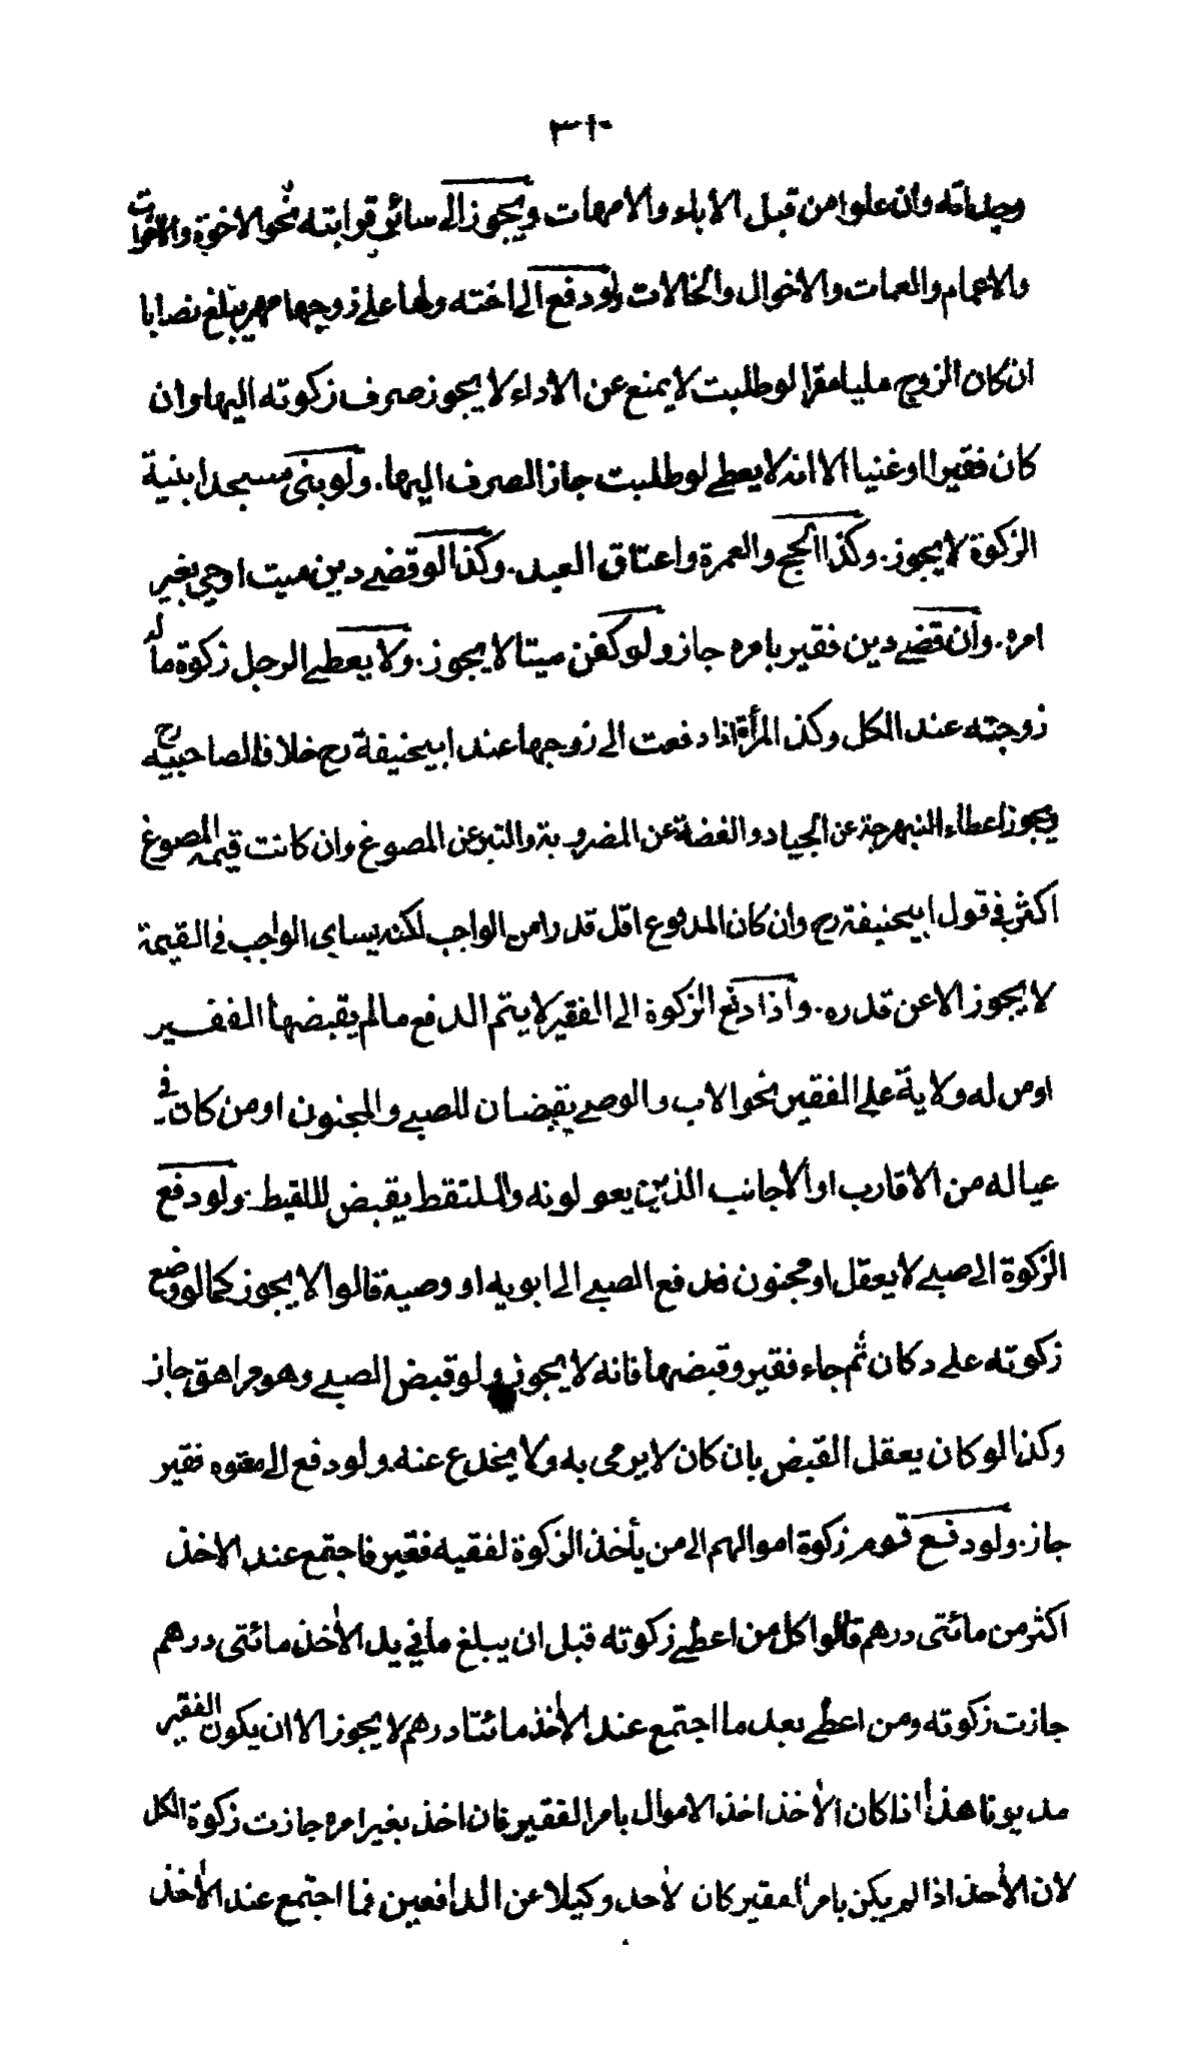 ٣١٠
وجداته وان علوا من قبل الاباء والامهات ويجوز الى سائر قرابته نحو الاخوة والاخوات
والاعمام والعمات والاخوال والخالات ولو دفع الى اخته ولها على زوجها مهر يبلغ نصابا
ان كان الزوج مليا مقرا لو طلبت لا يمنع عن الاداء لا يجوز صرف زكوته اليها وان
كان فقيرا او غنيا الا انه لا يعطى لو طلبت جاز الصرف اليها. ولو بنى مسجدا بنية
الزكوة لا يجوز. وكذا الحج والعمرة واعتاق العبد. وكذا لو قضى دين ميت او حي بغير
امره. وان قضى دين فقير بامره جاز ولو كفن ميتا لا يجوز. ولا يعطى الرجل زكوة ماله
زوجته عند الكل وكذا المرأة اذا دفعت الى زوجها عند ابيحنيفة رح خلافا لصاحبيه رح
ويجوز اعطاء النبهرجة عن الجياد والفضة عن المضروبة والتبر عن المصوغ وان كانت قيمة المصوغ
اكثر في قول ابيحنيفة رح وان كان المدفوع اقل قدرا من الواجب لكنه يساوى الواجب في القيمة
لا يجوز الا عن قدره. واذا دفع الزكوة الى الفقير لا يتم الدفع ما لم يقبضها الفقير
او من له ولاية على الفقير نحو الاب والوصى يقبضان للصبى والمجنون او من كان في
عياله من الاقارب او الاجانب الذين يعولونه والملتقط يقبض للقيط. ولو دفع
الزكوة الى صبى لا يعقل او مجنون فدفع الصبى الى ابويه او وصيه قالوا لا يجوز كما لو وضع
زكوته على دكان ثم جاء فقير وقبضها فانه لا يجوز ولو قبض الصبى وهو مراهق جاز
وكذا لو كان يعقل القبض بان كان لا يرمى به ولا يخدع عنه. ولو دفع الى معتوه فقير
جاز. ولو دفع قوم زكوة اموالهم الى من يأخذ الزكوة لفقيه فقير فاجتمع عند الاخذ
اكثر من مائتى درهم قالوا كل من اعطى زكوته قبل ان يبلغ ما في يد الأخذ مائتى درهم
جازت زكوته ومن اعطى بعد ما اجتمع عند الأخذ مائتا درهم لا يجوز الا ان يكون الفقير
مديونا هذا اذا كان الأخذ اخذ الاموال بامر الفقير فان اخذ بغير امره جازت زكوة الكل
لان الأخذ اذا لم يكن بامر الفقير كان لأخذ وكيلا عن الدافعين فما اجتمع عند الأخذ